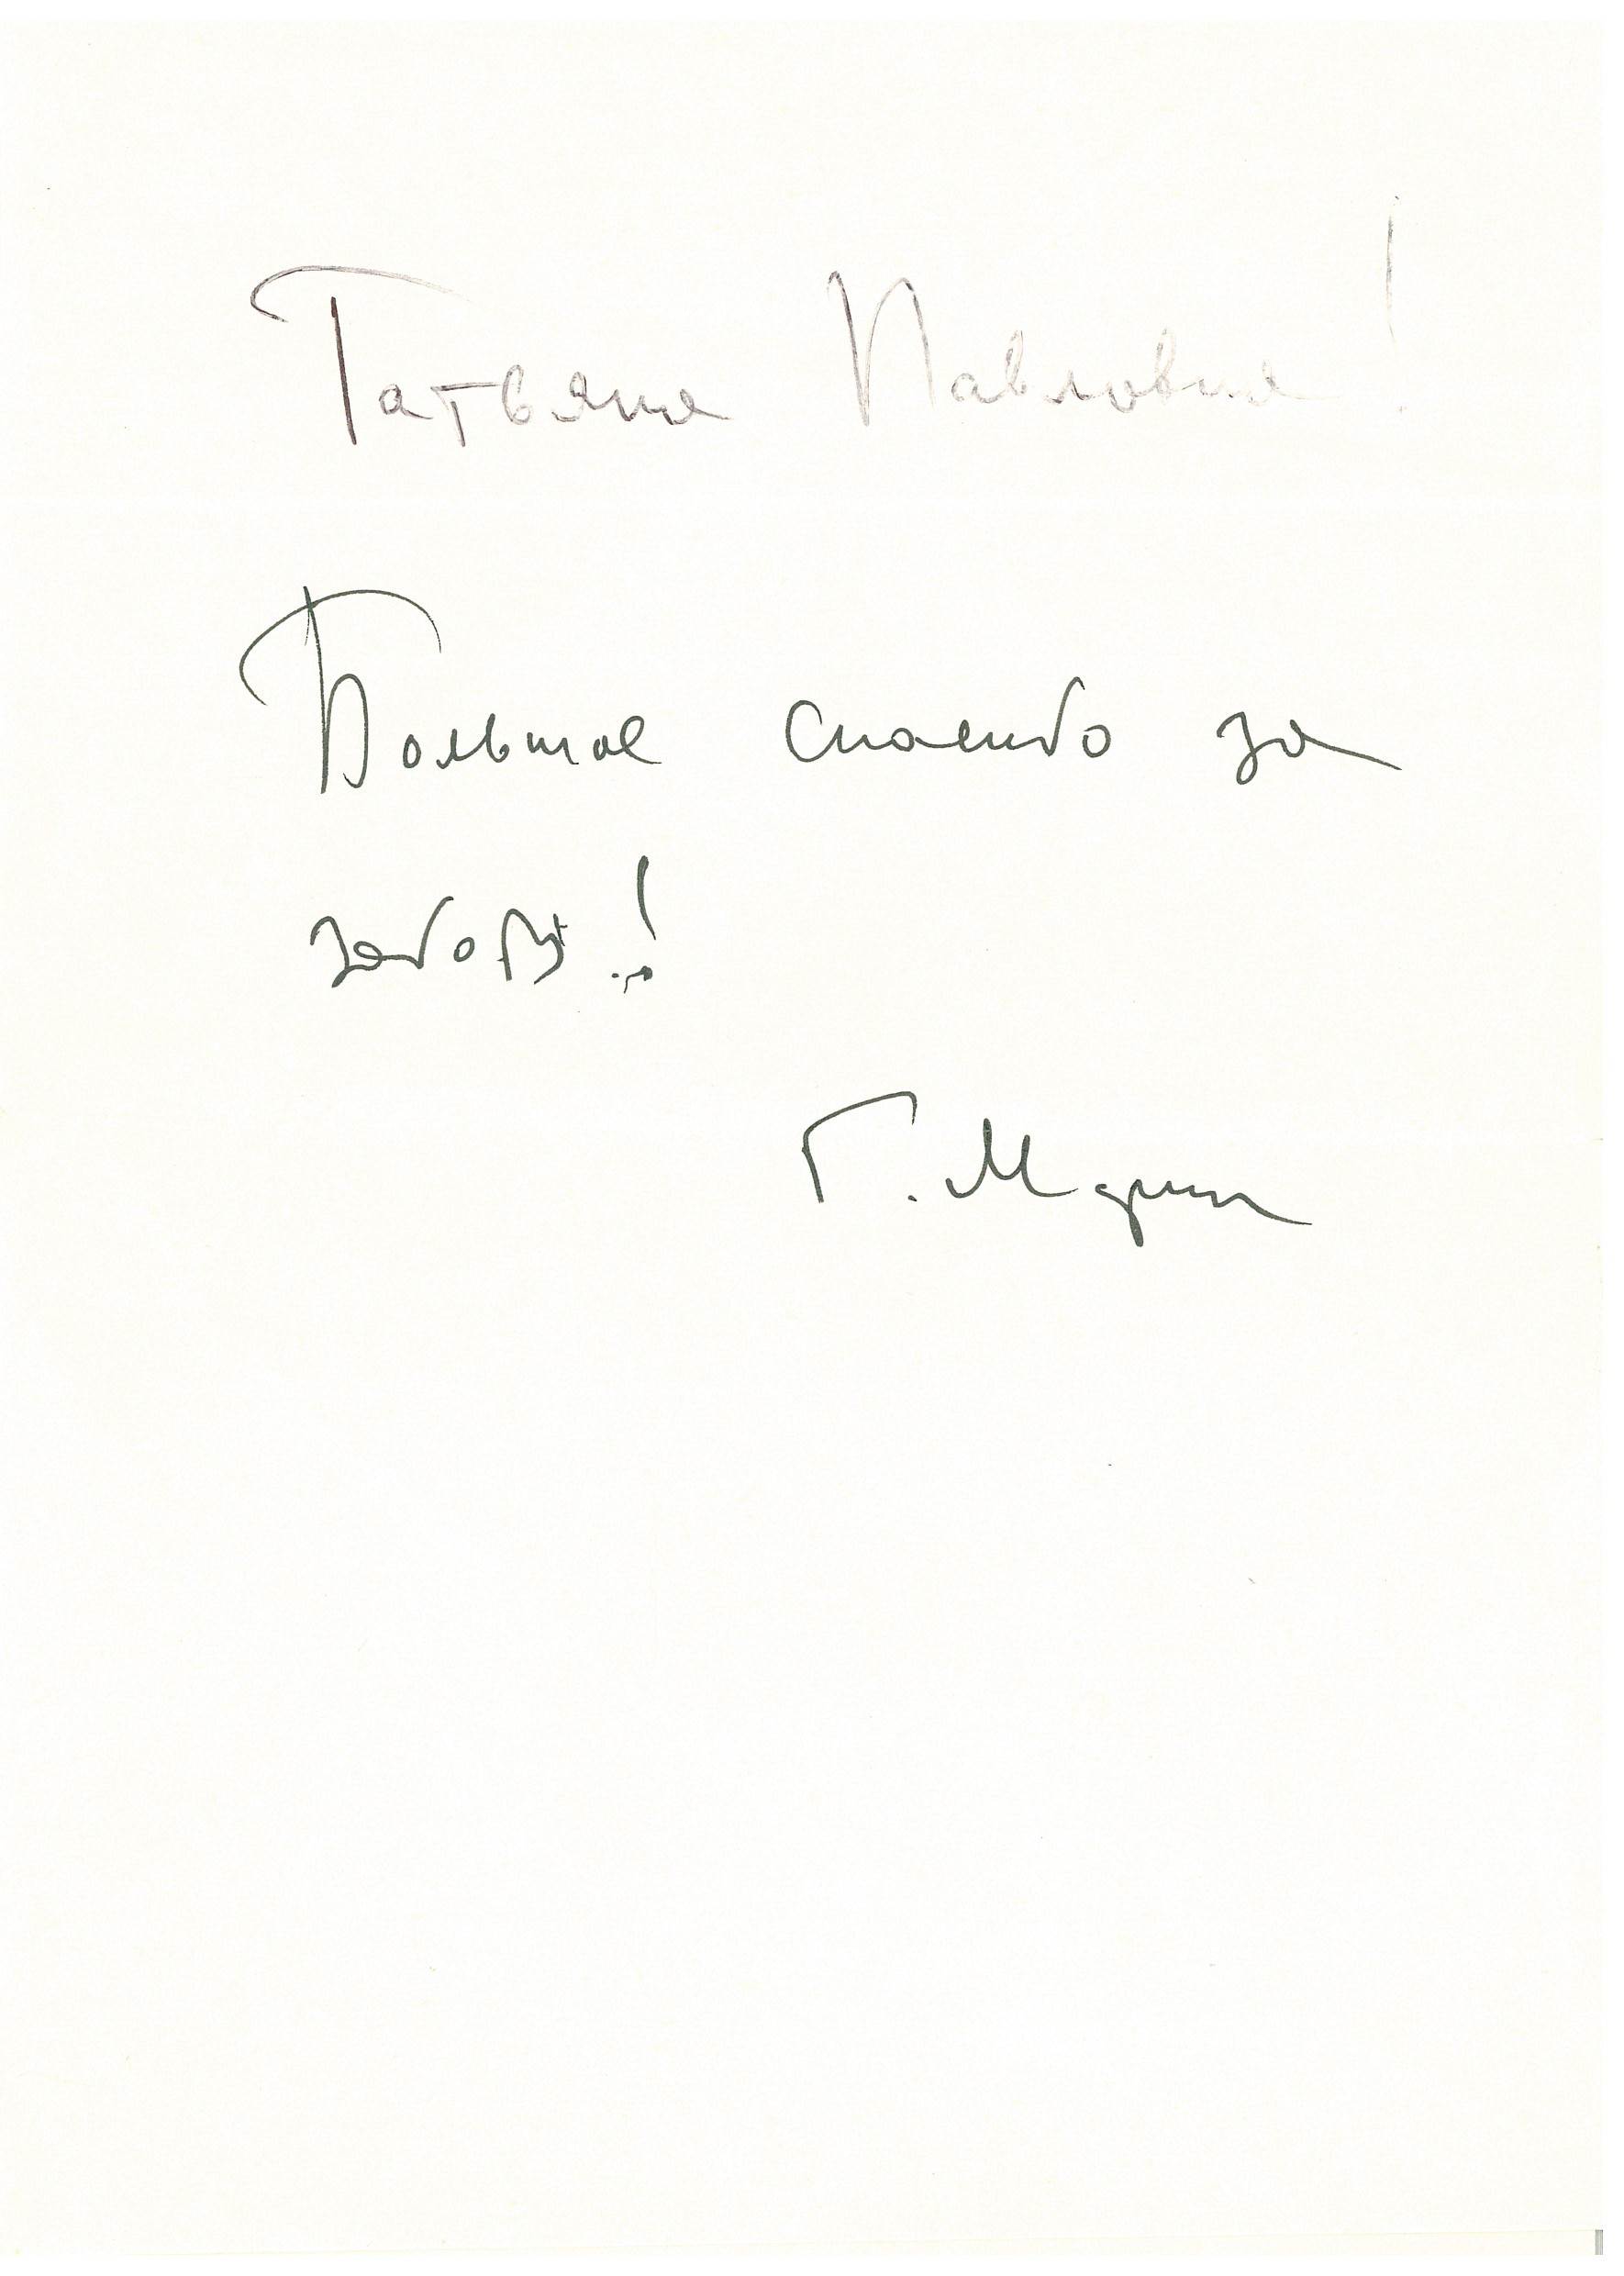 Татьяна Павловна!
Большое спасибо за
заботу!
Г. Марин